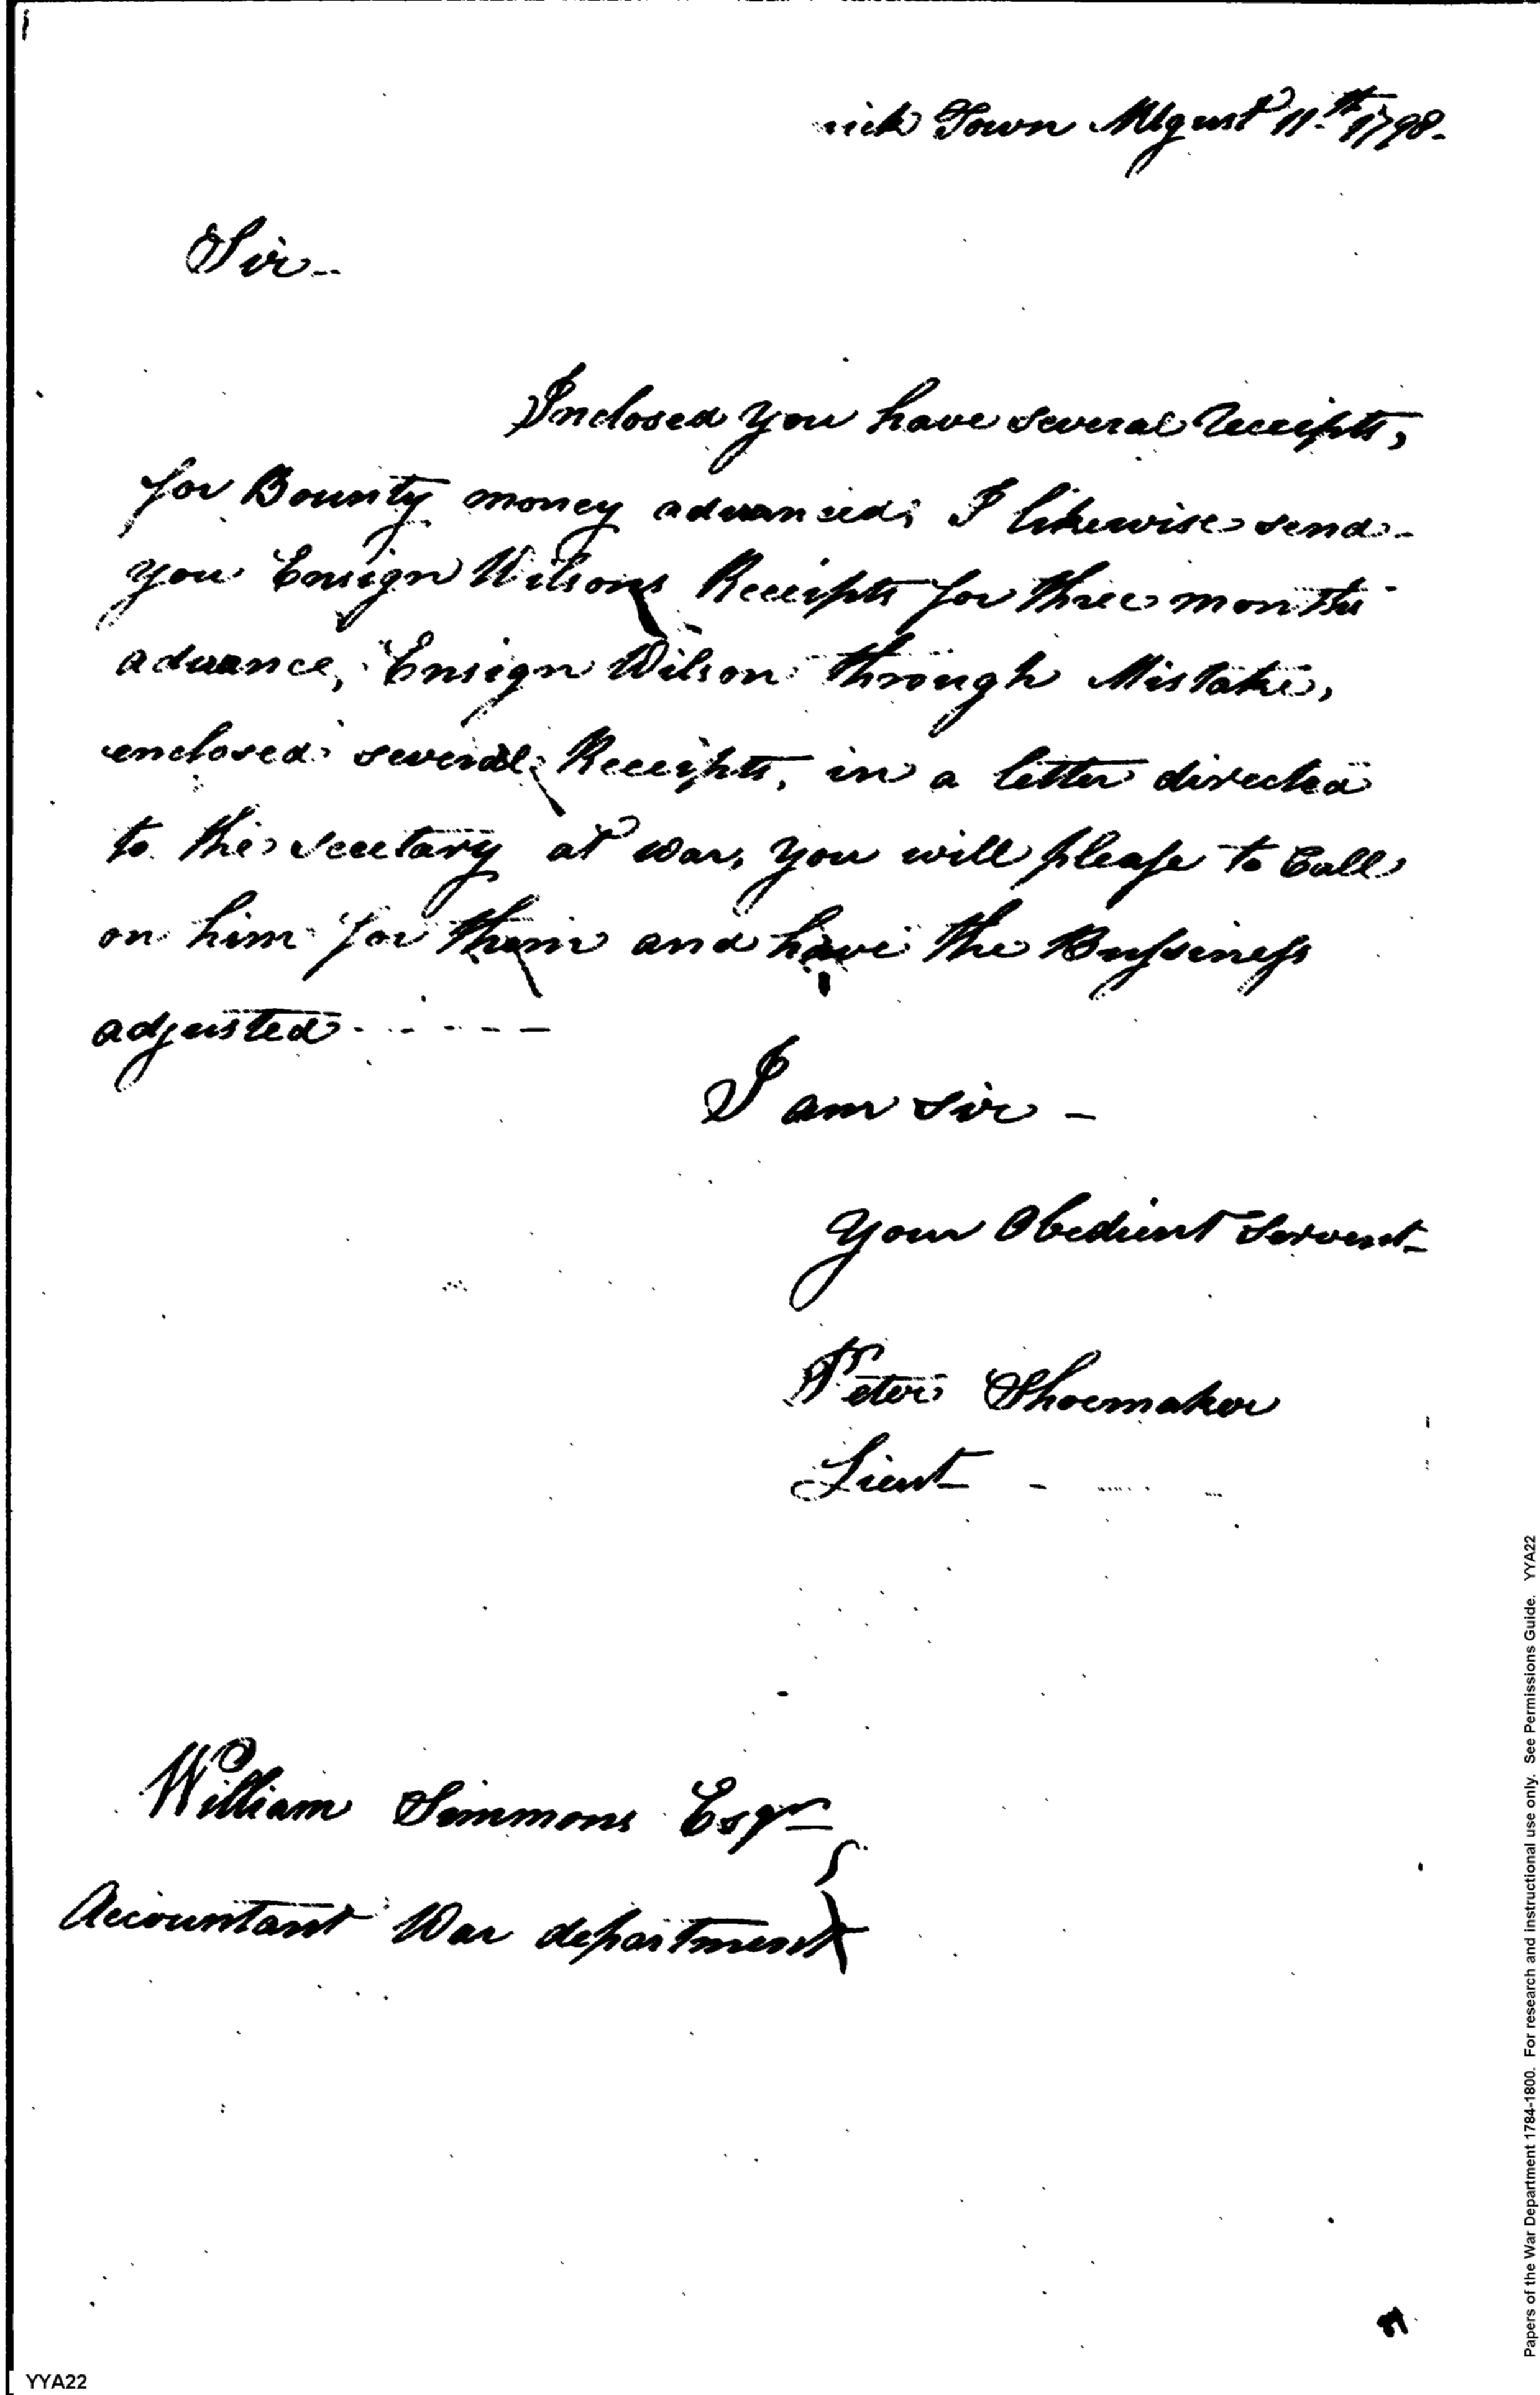 Town August 11th 1798.
Sir--
Inclosed you have several Receipts,
for Bounty money advanced; I likewise send
you Ensign Wilsons Receipts for three months
advance, Ensign Wilson through Mistake,
enclosed several Receipts, in a letter directed
to the Secetary at War, you will please to Call
on him for them and have the Bussiness
adjusted - - - - - -
I am Sir -
Your Obedient Servent
Peter Shoemaker
Lieut - - -
William Simmons Esqr
Accountant War department
Papers of the War Department 1784-1800. For research and instructional use only. See Permissions Guide. YYA22
YYA22